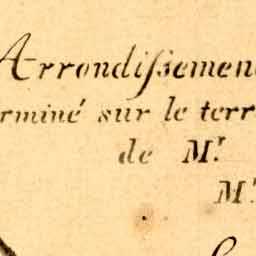 Arrondissemen
rminé sur le terr
de Mr.
Mr.